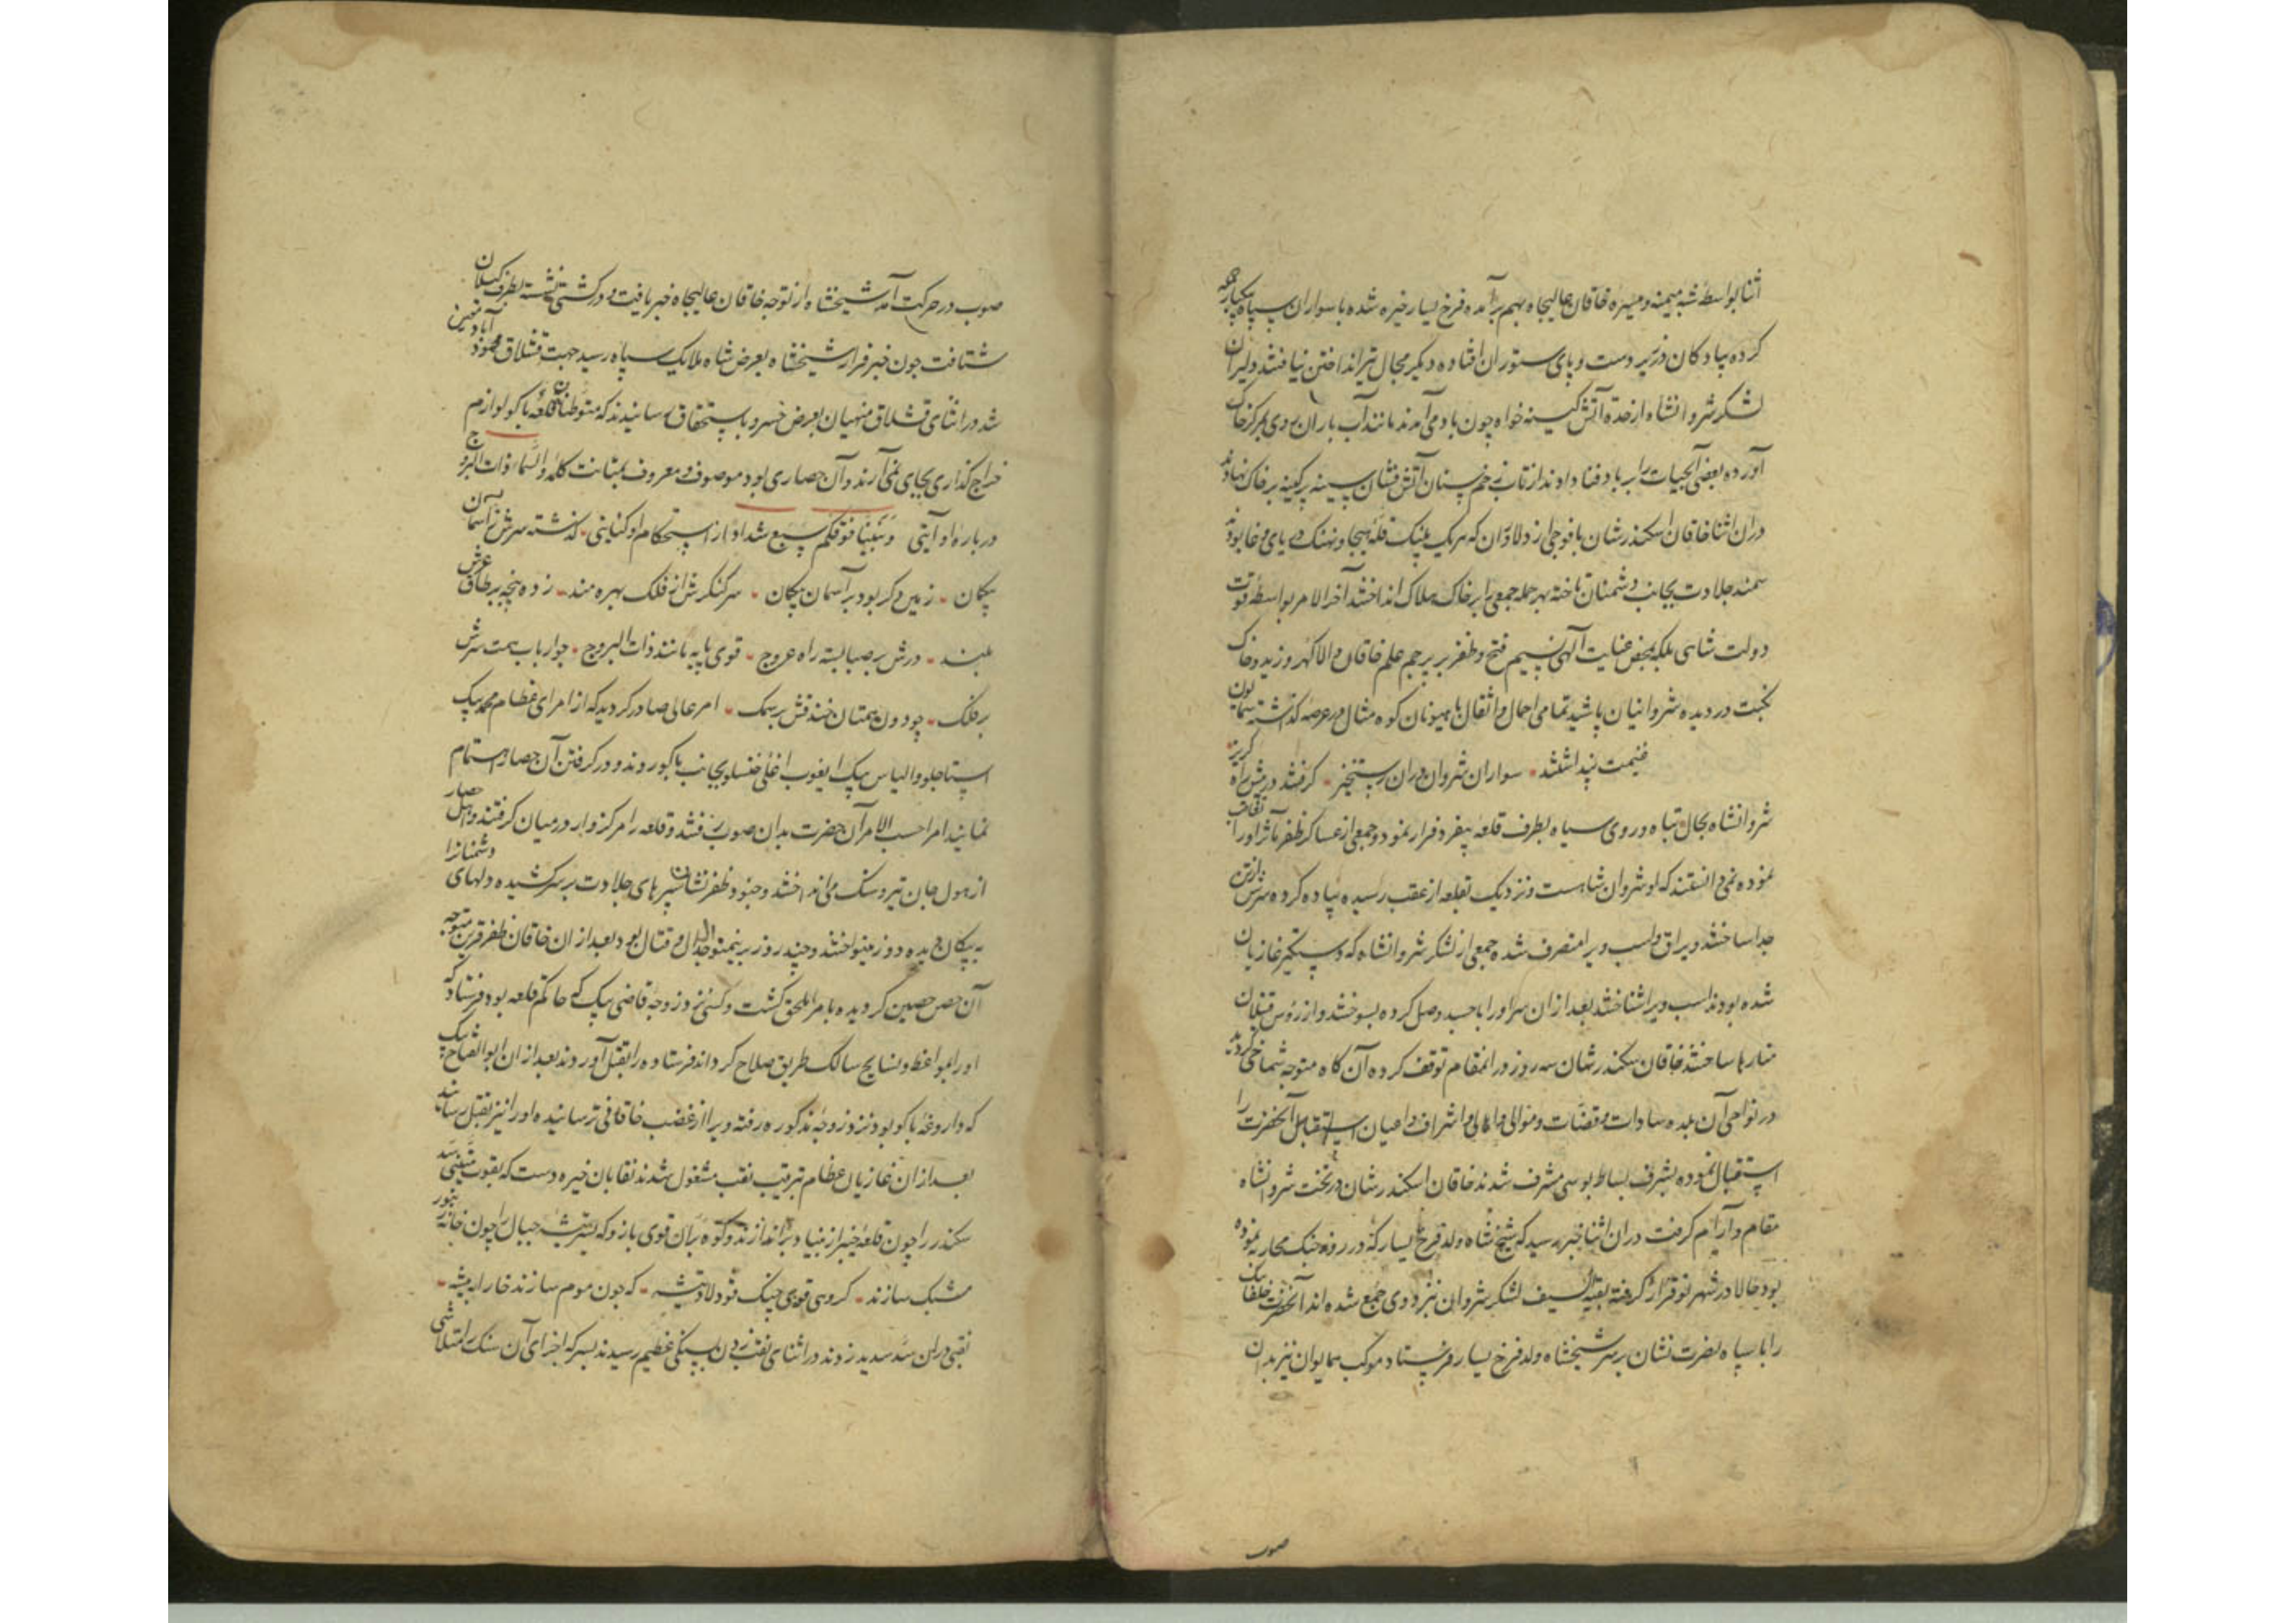 اثنا بواسطهٔ شبه میمنه و میسره خاقان عالیجاه بهم برآمده فرخ یسار خیره شده با سواران سپاه یکبار حمله
کرده پیادگان در زیر دست و پای ستوران افتاده دیگر مجال تیر انداختن نیافتند دلیران
لشکر شروانشاه از حدة آتش کینه خواه چون باد می آمدند مانند آب باران روی بمرکز خاک
آورده بعضی آبحیات را بر باد فنا دادند از تاب زخم سنان آتش فشان سینه پرکینه بر خاک نهادند
دران اثنا خاقان اسکندرشان با فوجی از دلاوران که هریک پلنک قلهٔ هیجا و نهنک دریای وغا بودند
سمند جلادت بجانب دشمنان تاخته بهر حمله جمعی را بر خاک هلاک انداختند آخر الامر بواسطهٔ قوت
دولت شاهی بلکه بمحض عنایت آلهی نسیم فتح و ظفر بر پرچم علم خاقان والاکهر وزید و خاک
نکبت در دیده شروانیان پاشید تمامی احمال و اثقال با هیونان کوه مثال در عرصه کذاشته همایون
غنیمت پنداشتند سواران شروان دران رستخیز کرفتند در پیش راه کریز
شروانشاه بحال تباه و روی سیاه بطرف قلعه بیغرد فرار نمود و جمعی از عساکر ظفر مآثر او را تعاقب
نموده نمی دانستند که او شروان شاهست و نزدیک بقلعه از عقب رسیده پیاده کرده سرش از تن
جدا ساختند و یراق و اسب ویرا متصرف شده جمعی از لشکر شروانشاه که دستکیر غازیان
شده بودند اسب ویرا شناختند بعد از ان سر او را با جسد وصل کرده بسوختند و از رؤس قتیلان
منارها ساختند خاقان سکندرشان سه روز در انمقام توقف کرده آن کاه متوجه شماخی کردید
در نواحی آن بلده سادات و قضات و موالی و اهالی و اشراف و اعیان استقبال آنحضرت را
استقبال نموده بشرف بساط بوسی مشرف شدند خاقان اسکندرشان در تخت شروانشاه
مقام و آرام کرفت دران اثنا خبر رسید که شیخ شاه ولد فرخ یسار که در روز جنک محاربه نموده
بود حالا در شهر نو قرار کرفته بقیة السیف لشکر شروان نزد وی جمع شده اند آنحضرت خلفا بیک
را با سپاه نصرت نشان بر سر شیخشاه ولد فرخ یسار فرستاد موکب همایون نیز بدان
صوب
صوب در حرکت آمد شیخشاه از توجه خاقان عالیجاه خبر یافت و در کشتی نشسته بطرف کیلان
شتافت چون خبر فرار شیخشاه بعرض شاه ملایک سپاه رسید جهت قشلاق محمودآباد تعیین
شد در اثنای قشلاق منهیان بعرض خسرو باستحقاق رسانیدند که متوطنان قلعهٔ باکو لوازم
خراج کذاری بجای نمی آرند و آن حصاری بود موصوف و معروف بمتانت کلمه والسماء ذات البروج
درباره او آیتی وبنینا فوقکم سبع شداد از استحکام او کنایتی کذشته سرش ز آسمان
پیکان زمین دکر بود بر آسمان پیکان سر کنکرش از فلک بهره مند زده پنجه بر طاق عرش
بلند درش بر صبا بسته راه عروج قوی پایه مانند ذات البروج چو ارباب همت سرش
بر فلک چو دون همتان خندقش بر سمک امر عالی صادر کردید که از امرای عظام محمد بیک
استاجلو و الیاس بیک ایغوب اغلی خنسلو بجانب باکو روند و در کرفتن آن حصار اهتمام
نمایند امرا حسب الامر آن حضرت بدان صوب رفتند و قلعه را مرکز وار در میان کرفتند و اهل حصار
از هول جان تیر و سنک می انداختند و جنود ظفرنشان سپرهای جلادت بر سر کشیده دلهای دشمنانرا
به پیکان دیده دوز مینواختند و چند روز برینمنوال جدال و قتال بود بعد از ان خاقان ظفر قرین متوجه
آن حصن حصین کردیده بامرا ملحق کشت و کسی نزد زوجه قاضی بیک که حاکم قلعه بود فرستاد که
او را بمواعظ و نصایح سالک طریق صلاح کرداند فرستاده را بقتل آوردند بعد از ان ابو الفتاح بیک
که داروغه باکو بود نزد زوجهٔ مذکوره رفته ویرا از غضب خاقانی ترسانیده او را نیز بقتل رسانید
بعد از ان غازیان عظام بترتیب نقب مشغول شدند نقابان خیره دست که بقوت تیشه سد
سکندر را چون قلعهٔ خیبر از بنیاد براندازند و کوه بران قوی بازو که بتیشه جبال را چون خانه زنبور
مشبک سازند کروهی قوی چنک فولاد تیشه که چون موم سازند خارا بپیشه
نقبی دران سد سدید زدند در اثنای نقب زدن بسنکی عظیم رسیدند بسرکه اجزای آن سنک را متلاشی